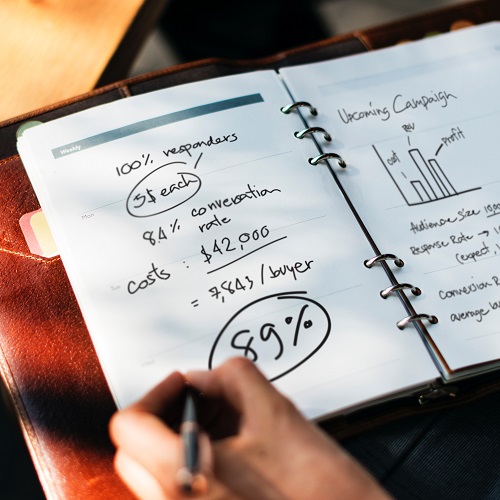 Weekly
100% responders
5$ each
8.4% conversation
rate
costs : $42,000
= 7,843 /buyer
89%
Upcoming Campaign
cost
rev
profit
Audience size
Response Rate →
(expect,
conversion
average